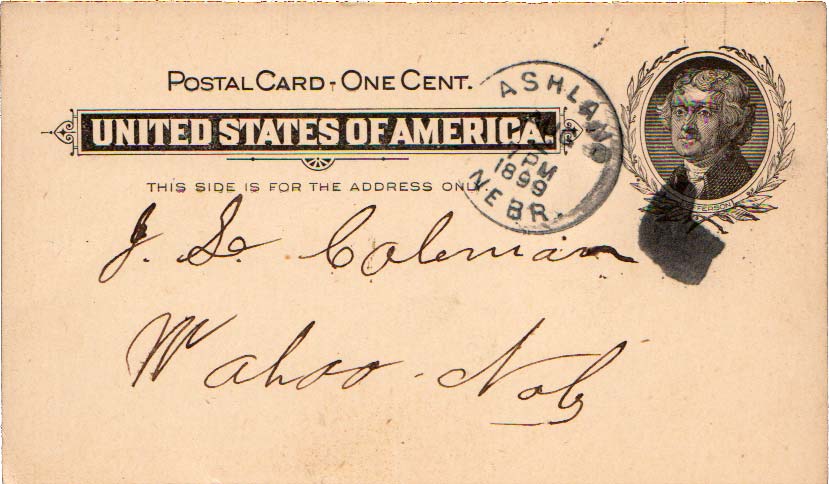 POSTAL CARD - ONE CENT.
UNITED STATES OF AMERICA.
THIS SIDE IS FOR THE ADDRESS ONLY
ASHLAND
PM
1899
NEBR.
JEFFERSON
J. S. Coleman
Wahoo - Neb